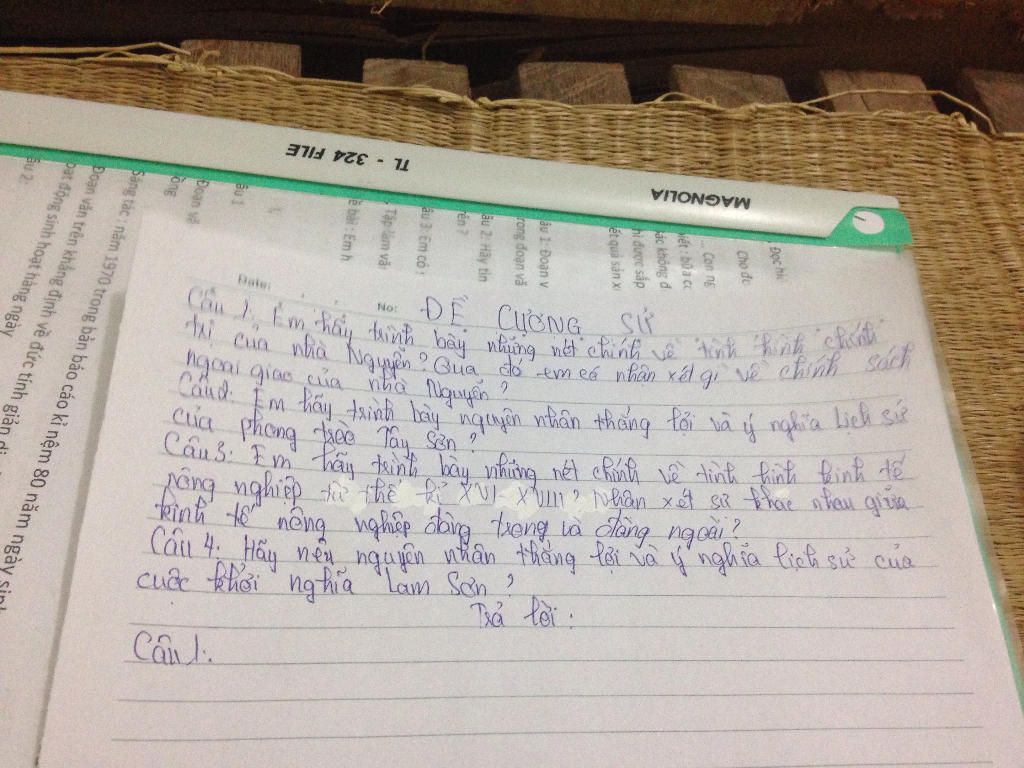 TL - 324 FILE
MAGNOLIA
Date:
No:
ĐỀ CƯƠNG SỬ
Câu 1. Em hãy trình bày những nét chính về tình hình chính
trị của nhà Nguyễn? Qua đó em có nhận xét gì về chính sách
ngoại giao của nhà Nguyễn?
Câu 2. Em hãy trình bày nguyên nhân thắng lợi và ý nghĩa lịch sử
của phong trào Tây Sơn?
Câu 3: Em hãy trình bày những nét chính về tình hình kinh tế
nông nghiệp từ thế kỉ XVI - XVIII? Nhận xét sự khác nhau giữa
kinh tế nông nghiệp đàng trong và đàng ngoài?
Câu 4. Hãy nêu nguyên nhân thắng lợi và ý nghĩa lịch sử của
cuộc khởi nghĩa Lam Sơn?
Trả lời:
Câu 1.
Câu 1
Đoạn vă
Sáng tác: năm 1970 trong bản báo cáo kỉ nệm 80 năm ngày sinh
Đoạn văn trên khẳng định về đức tính giản dị
oạt động sinh hoạt hàng ngày
âu 2:
ề bài: Em h
Tập làm văn
âu 3: Em có
rên?
âu 2: Hãy tìn
rong đoạn vă
âu 1: Đoạn v
ết quả sản x
hì được sắp
ác không đ
iết: bữa c
Con ng
Cho đo
Đọc hiể